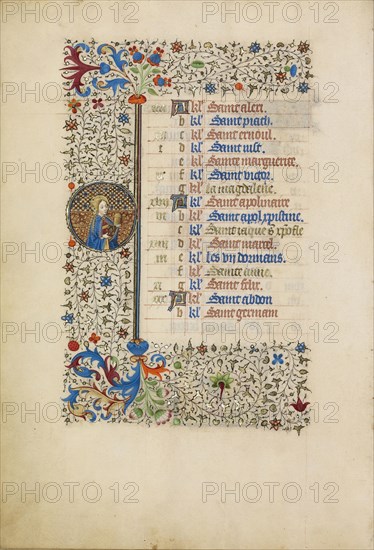 A kl' Saint aleri
b kl' Saint piath
c kl' Saint ernoul
d kl' Saint iust
e kl' Sainte marguerite
f kl' Saint victor
g kl' la magdaleine
A kl' Saint apolinaire
b kl' Saint xpistine
c kl' Saint iaque s xpofle
d kl' Saint marcel
e kl' les vii dormans
f kl' Sainte anne
g kl' Saint felix
A kl' Saint abdon
b kl' Saint germain
PHOTO12